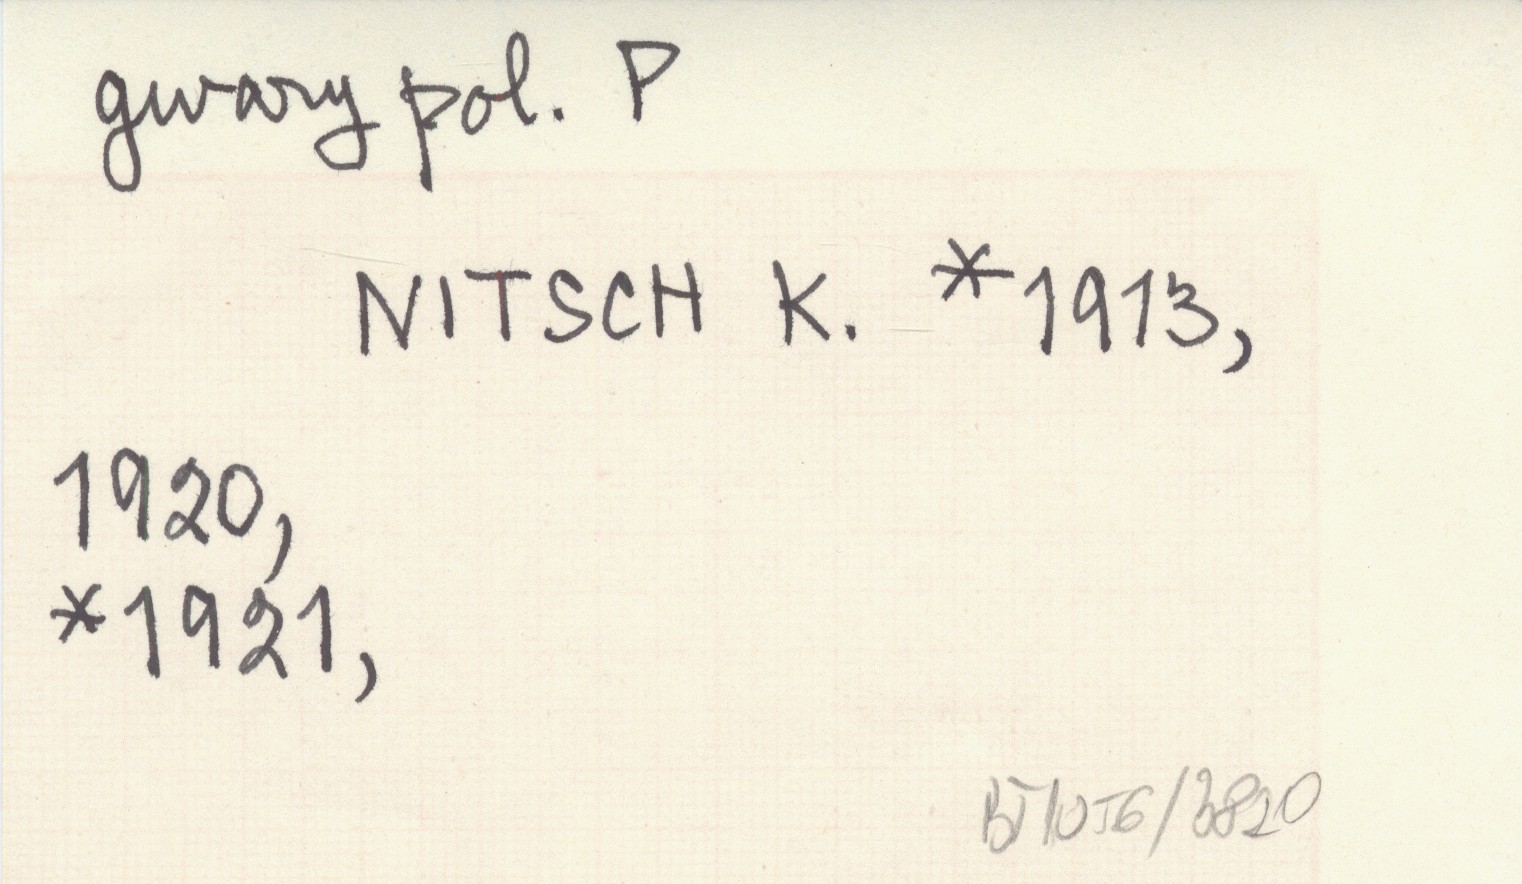 gwary pol. P
NITSCH K. *1913,
1920,
*1921,
/3820